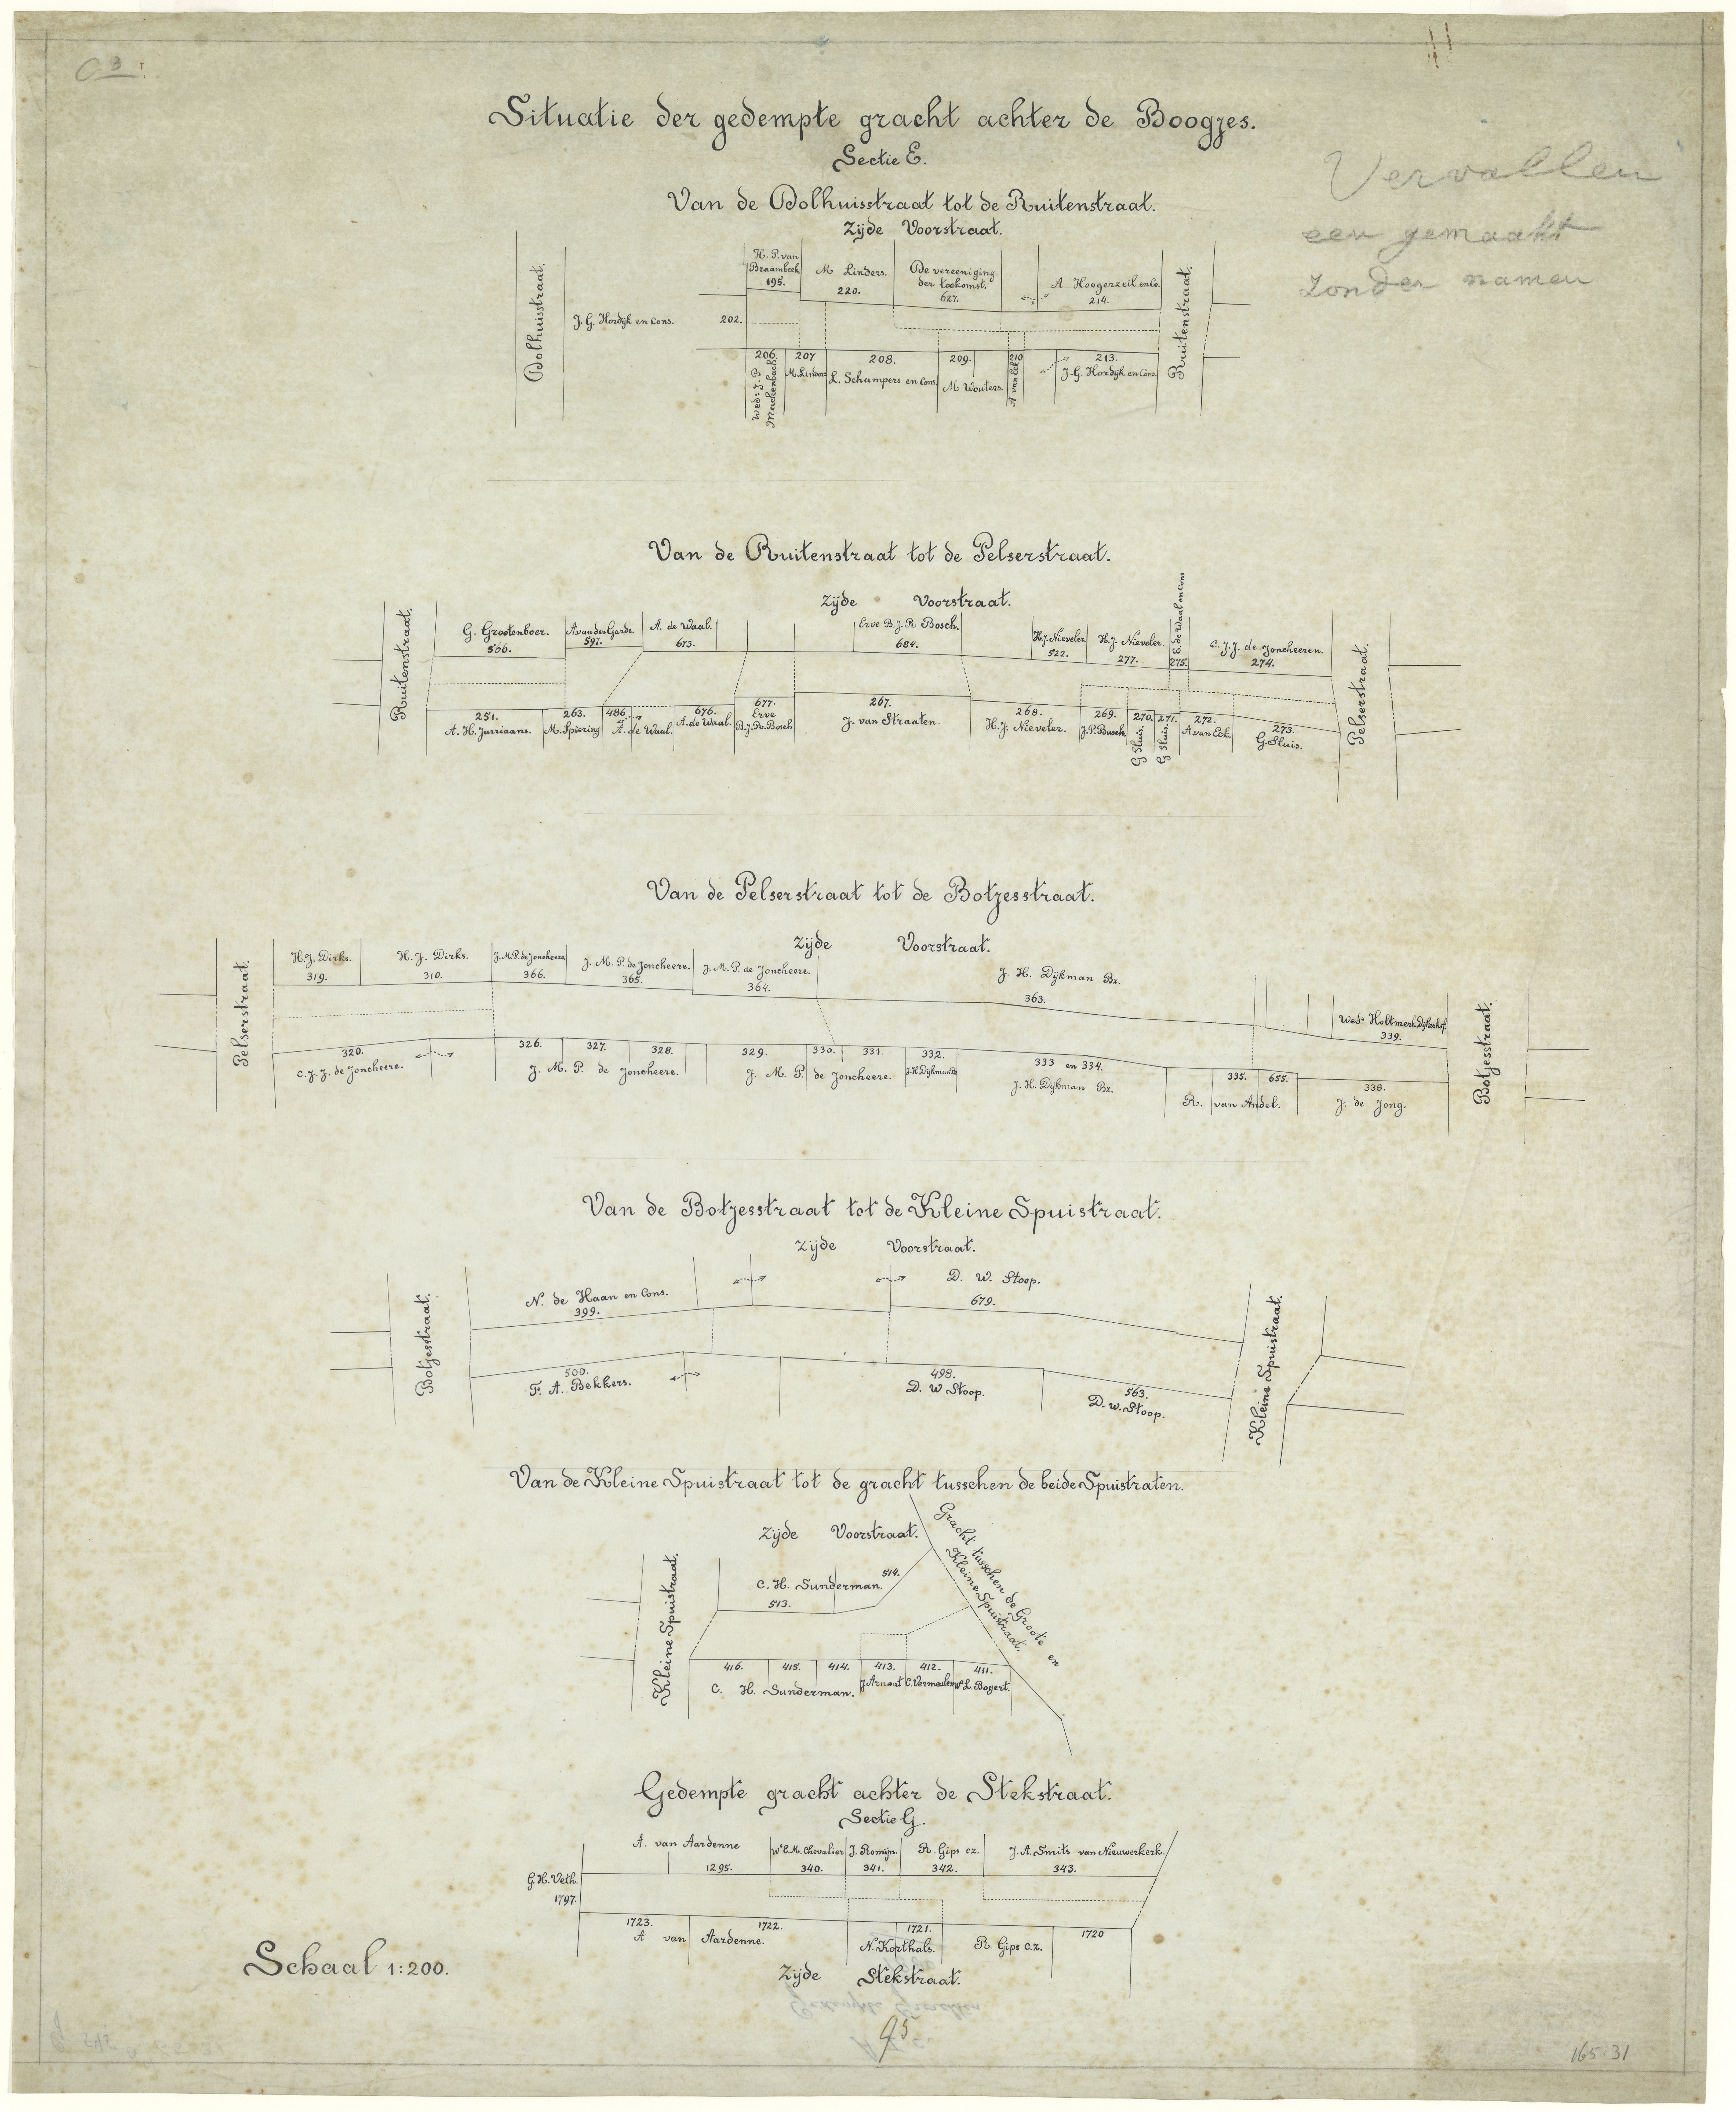 C 3
Situatie der gedempte gracht achter de Boogjes.
Sectie E.
Vervallen
een gemaakt
zonder namen
Van de Dolhuisstraat tot de Ruitenstraat.
Zijde Voorstraat.
Dolhuisstraat.
J. G. Hordijk en Cons.
202.
H. P. van
Braambeek
195.
M Linders.
220.
De vereeniging
der toekomst.
627.
A Hoogerzeil en Co.
214.
Ruitenstraat.
206.
Wed: J. P.
Mackenbach
207
M. Linders
208.
L. Schampers en Cons.
209.
M Wouters.
210
A van Eck
213.
J. G. Hordijk en Cons.
Van de Ruitenstraat tot de Pelserstraat.
Zijde Voorstraat.
Ruitenstraat.
G. Grootenboer.
566.
A van der Garde.
597.
A. de Waal.
673.
Erve B. J. R. Bosch.
684.
H. J. Nieveler.
522.
H. J. Nieveler.
277.
E. de Waal en Cons
275.
C. J. J. de Joncheeren.
274.
Pelserstraat.
251.
A. H. Jurriaans.
263.
M. Spiering
486.
A. de Waal.
676.
A. de Waal.
677.
Erve
B. J. R. Bosch
267.
J. van Straaten.
268.
H. J. Nieveler.
269.
J. P. Busch.
270.
G Sluis.
271.
G Sluis.
272.
A van Eck.
273.
G. Sluis.
Van de Pelserstraat tot de Botjesstraat.
Zijde Voorstraat.
Pelserstraat.
H. J. Dirks.
319.
H. J. Dirks.
310.
J. M. P. de Joncheere
366.
J. M. P. de Joncheere.
365.
J. M. P. de Joncheere.
364.
J. H. Dijkman Bz.
363.
Wed.
339.
Botjesstraat.
320.
C. J. J. de Joncheere.
326. 327. 328.
J. M. P. de Joncheere.
329. 330. 331.
J. M. P. de Joncheere.
332.
J. H. Dijkman Bz
333 en 334.
J. H. Dijkman Bz.
335. 655.
R. van Andel.
338.
J. de Jong.
Van de Botjesstraat tot de Kleine Spuistraat.
Zijde Voorstraat.
Botjesstraat.
N. de Haan en Cons.
399.
D. W. Stoop.
679.
Kleine Spuistraat.
500.
F. A. Bekkers.
498.
D. W Stoop.
563.
D. W. Stoop.
Van de Kleine Spuistraat tot de gracht tusschen de beide Spuistraten.
Zijde Voorstraat.
Gracht tusschen de Groote en
Kleine Spuistraat.
Kleine Spuistraat.
C. H. Sunderman.
513.
514.
416. 415. 414.
C. H. Sunderman.
413.
J Arnout
412.
C. Vermeulen
411.
L. Bogert.
Gedempte gracht achter de Stekstraat.
Sectie G.
G. H. Veth.
1797.
A. van Aardenne
1295.
We C. M. Chevalier
340.
J. Romijn.
341.
R. Gips cz.
342.
J. A. Smits van Nieuwerkerk.
343.
1723. 1722.
A van Aardenne.
1721.
N. Korthals.
R. Gips c.z.
1720
Zijde Stekstraat.
Schaal 1:200.
95
165-31